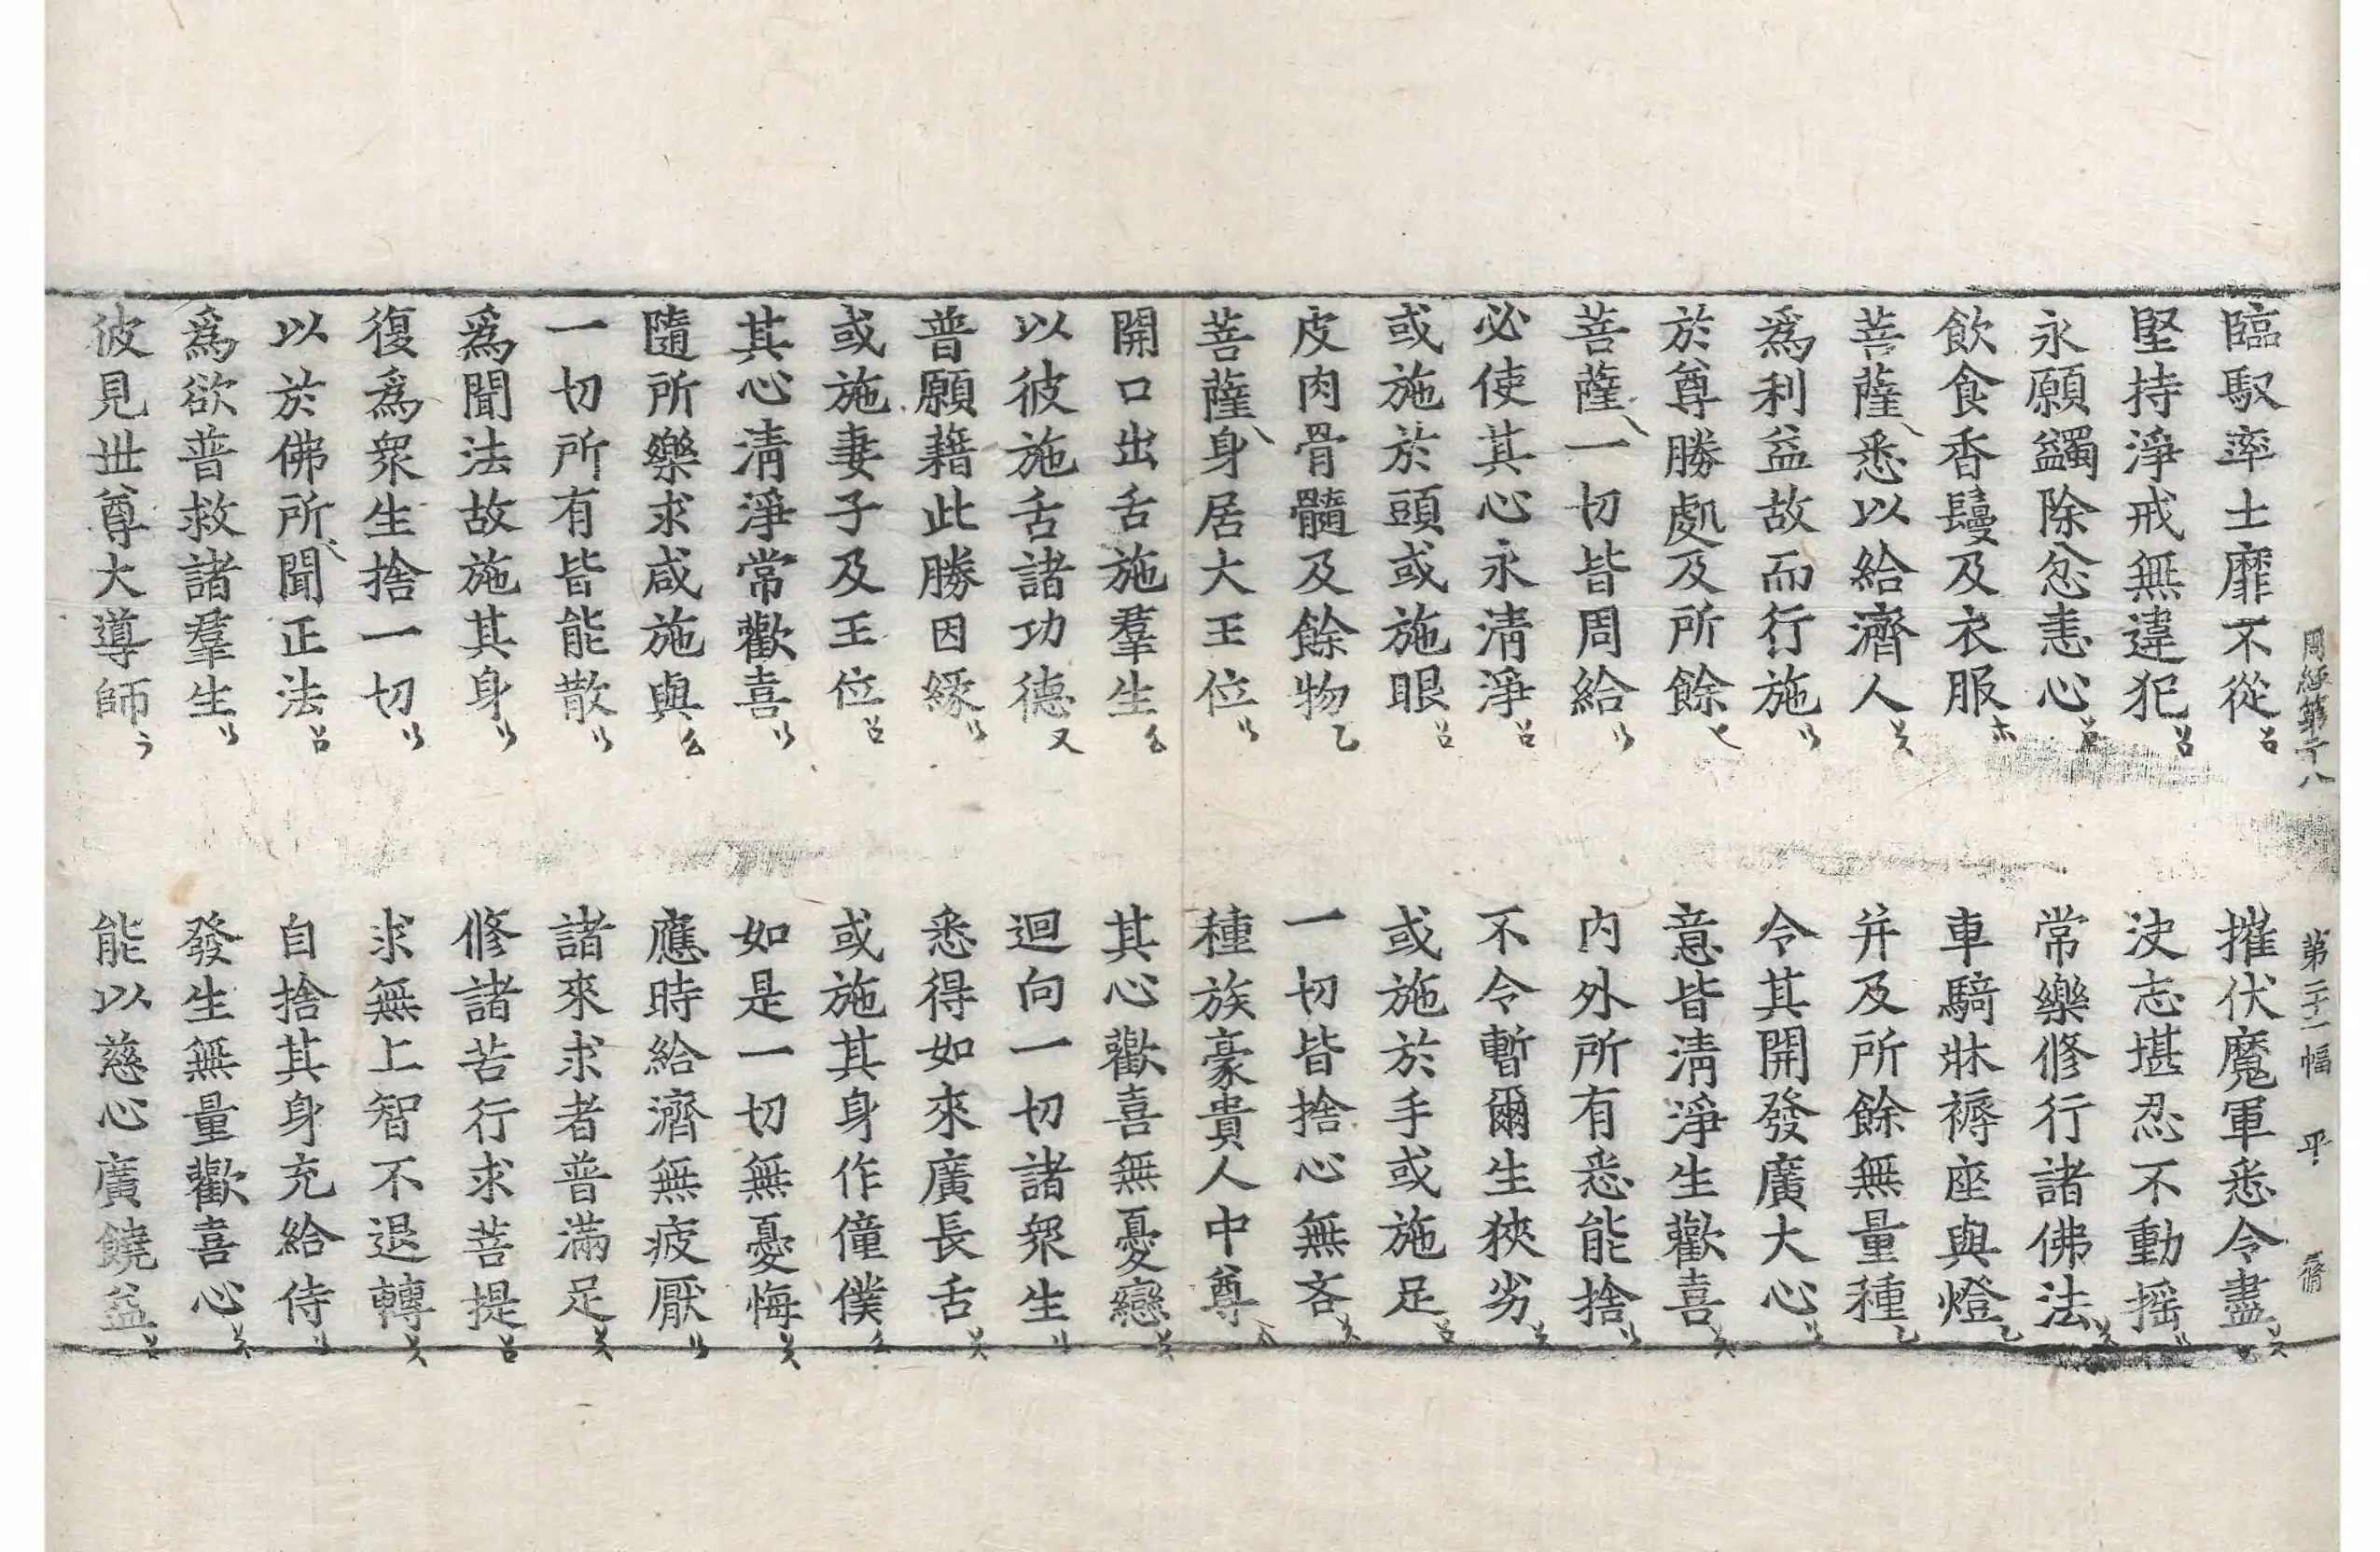 周經第二十八 第二十一幅 平
臨馭率土靡不從 摧伏魔軍悉令盡
堅持淨戒無違犯 決志堪忍不動搖
永願蠲除忿恚心 常樂修行諸佛法
飲食香鬘及衣服 車騎牀褥座與燈
菩薩悉以給濟人 幷及所餘無量種
爲利益故而行施 令其開發廣大心
於尊勝處及所餘 意皆淸淨生歡喜
菩薩一切皆周給 內外所有悉能捨
必使其心永淸淨 不令暫爾生狹劣
或施於頭或施眼 或施於手或施足
皮肉骨髓及餘物 一切皆捨心無吝
菩薩身居大王位 種族豪貴人中尊
開口出舌施羣生 其心歡喜無憂戀
以彼施舌諸功德 迴向一切諸衆生
普願藉此勝因緣 悉得如來廣長舌
或施妻子及王位 或施其身作僮僕
其心淸淨常歡喜 如是一切無憂悔
隨所樂求咸施與 應時給濟無疲厭
一切所有皆能散 諸來求者普滿足
爲聞法故施其身 修諸苦行求菩提
復爲衆生捨一切 求無上智不退轉
以於佛所聞正法 自捨其身充給侍
爲欲普救諸羣生 發生無量歡喜心
彼見世尊大導師 能以慈心廣饒益